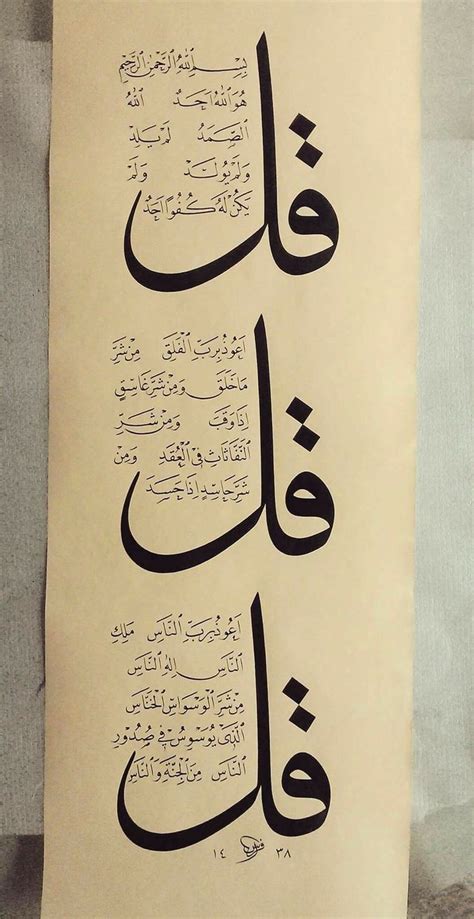 بِسْمِ اللهِ الرَّحْمٰنِ الرَّحِيمِ
قل
هُوَ اللهُ اَحَدٌ اللهُ
الصَّمَدُ لَمْ يَلِدْ
وَلَمْ يُولَدْ وَلَمْ
يَكُنْ لَهُ كُفُوًا اَحَدٌ
قل
اَعُوذُ بِرَبِّ الْفَلَقِ مِنْ شَرِّ
مَا خَلَقَ وَمِنْ شَرِّ غَاسِقٍ
اِذَا وَقَبَ وَمِنْ شَرِّ
النَّفَّاثَاتِ فِي الْعُقَدِ وَمِنْ
شَرِّ حَاسِدٍ اِذَا حَسَدَ
قل
اَعُوذُ بِرَبِّ النَّاسِ مَلِكِ
النَّاسِ اِلٰهِ النَّاسِ
مِنْ شَرِّ الْوَسْوَاسِ الْخَنَّاسِ
الَّذِي يُوَسْوِسُ فِي صُدُورِ
النَّاسِ مِنَ الْجِنَّةِ وَالنَّاسِ
١٤ ٣٨